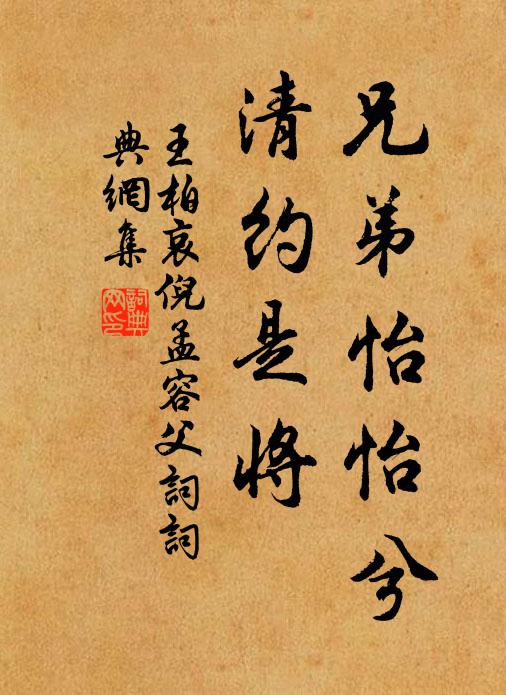 兄弟怡怡兮
清約是將
王柏哀倪孟容父詞詞
典網集
詞典網印